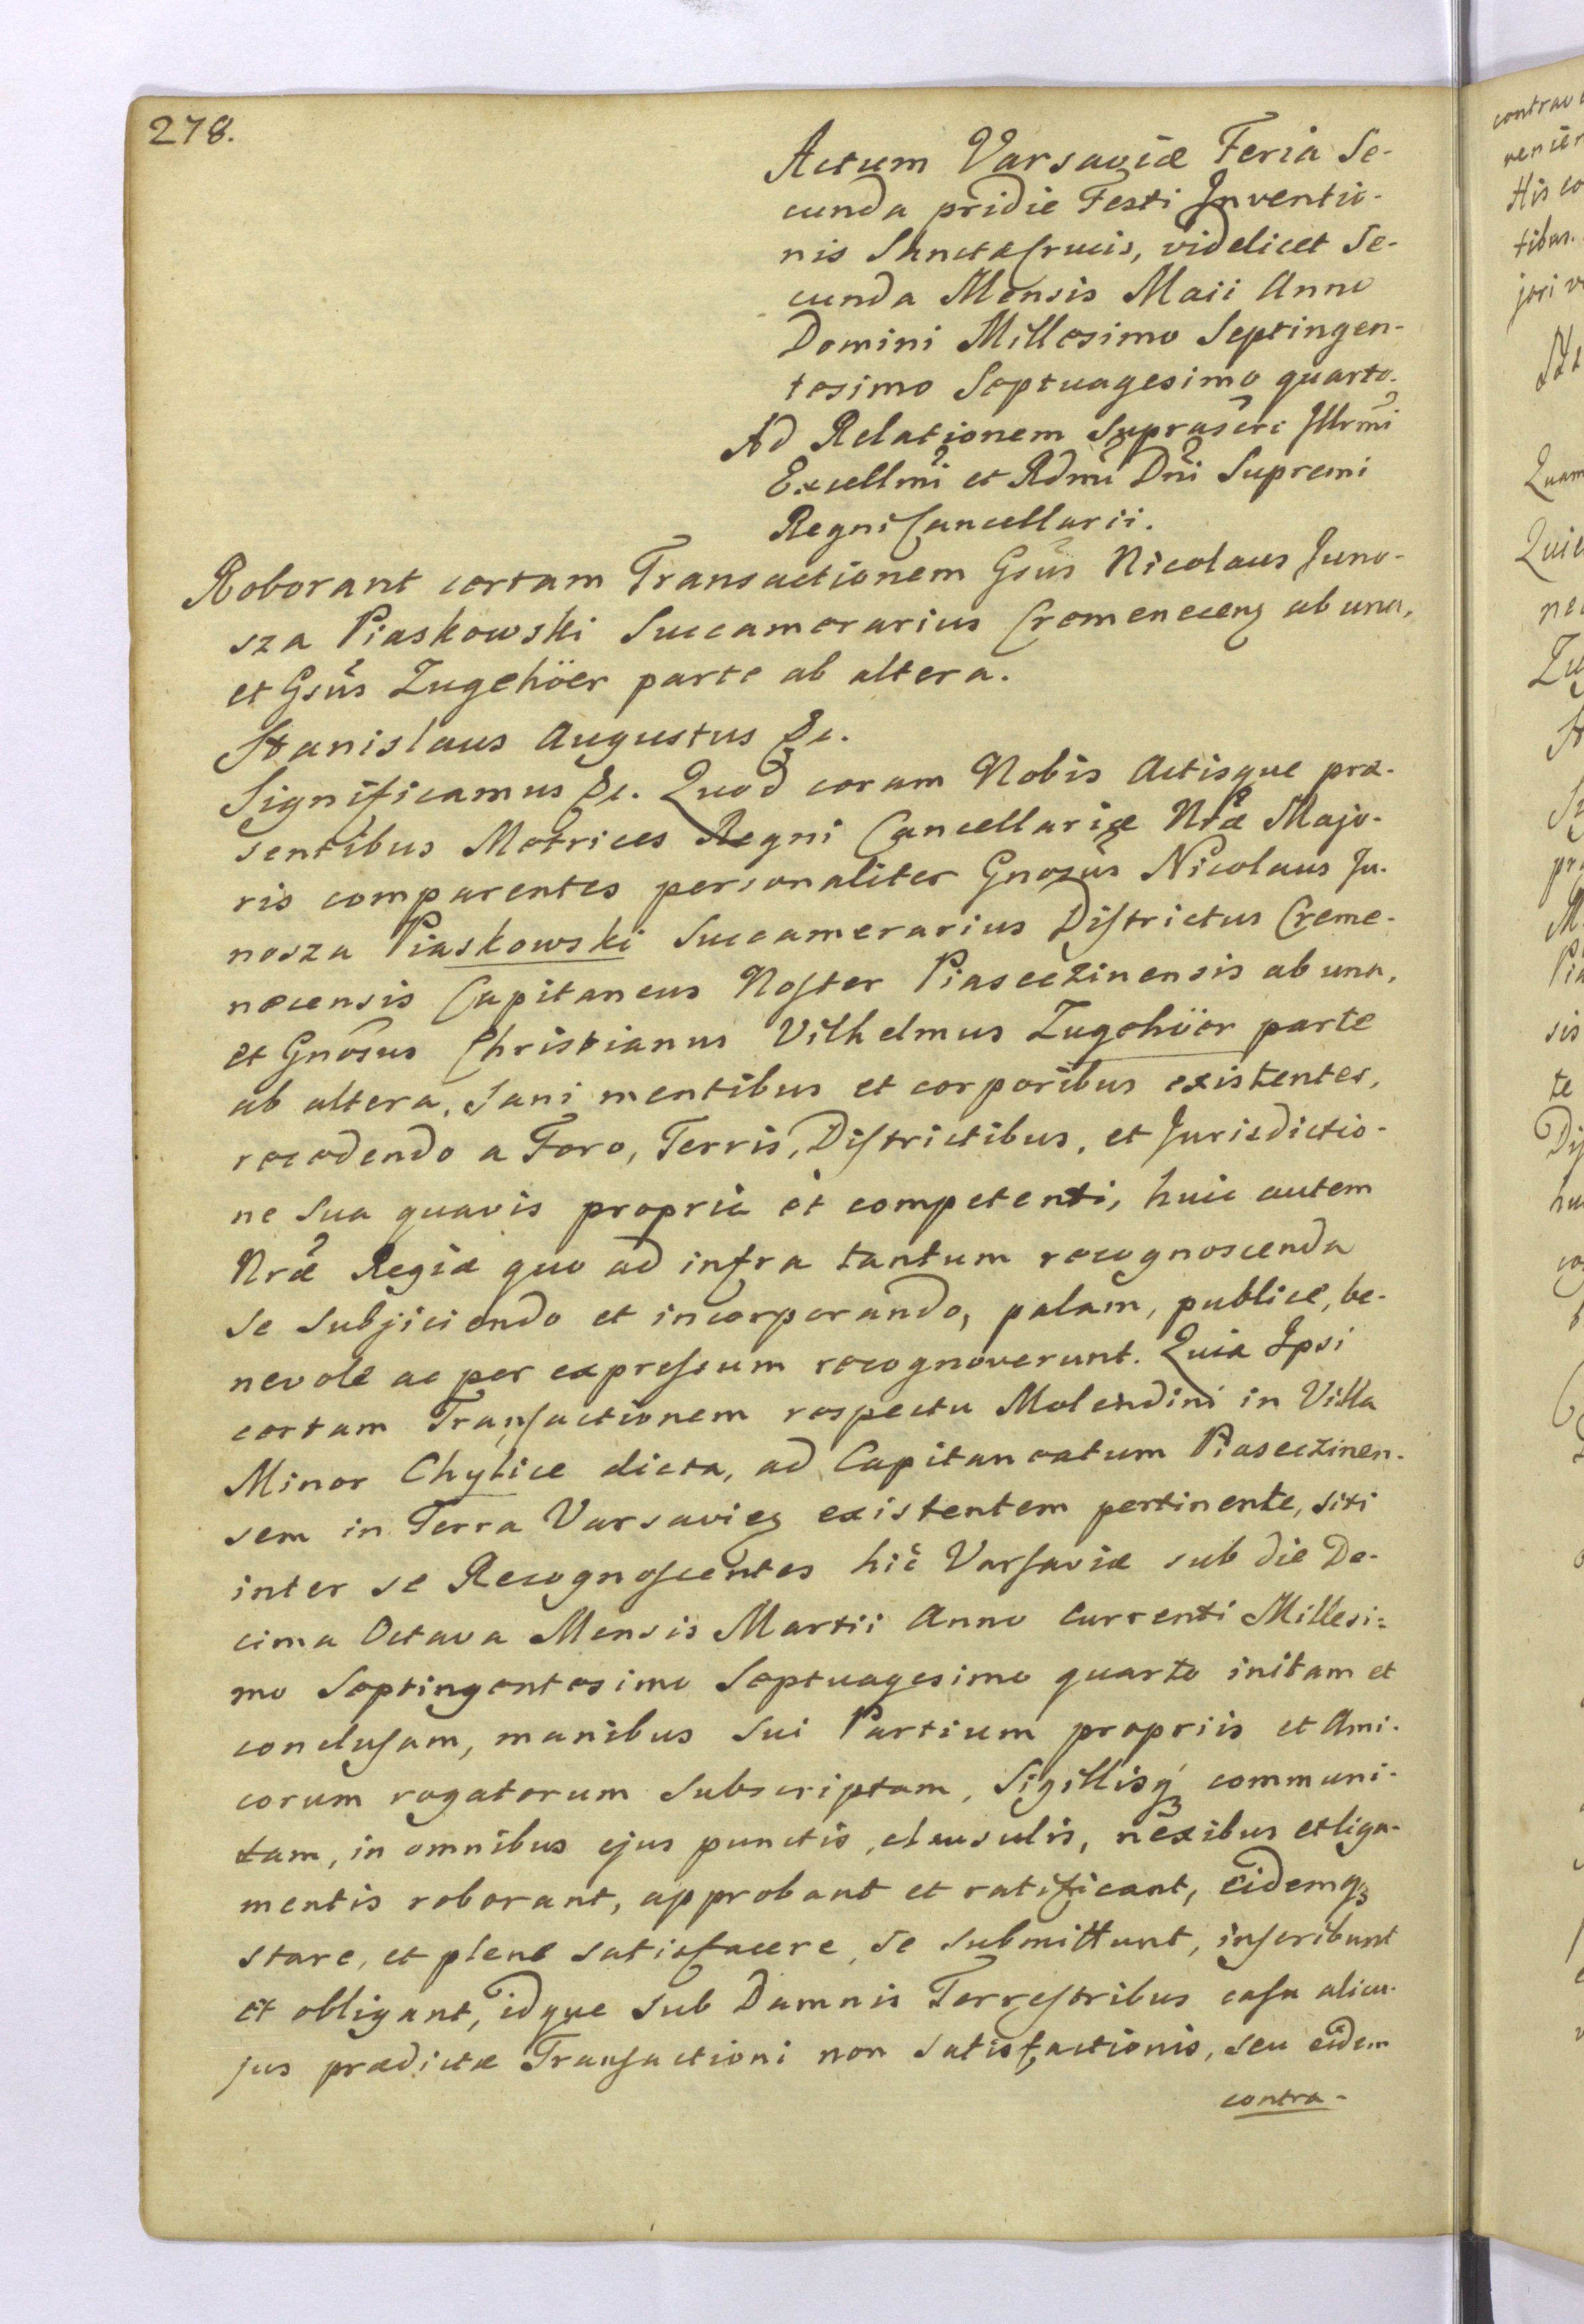 278.
Actum Varsaviæ Feria Se-
cunda pridie Festi Inventio-
nis Sanctæ Crucis, videlicet Se-
cunda Mensis Maii Anno
Domini Millesimo Septingen-
tesimo Septuagesimo quarto.
Ad Relationem Suprascri Illrmi
Excellmi et Rdmi Dni Supremi
Regni Cancellarii.
Roborant certam Transactionem Gsus Nicolaus Juno-
sza Piaskowski Succamerarius Cremenecenς ab una,
et Gsus Zugehöer parte ab altera.
Stanislaus Augustus &c.
Significamus &c. Quod coram Nobis Actisque præ-
sentibus Metrices Regni Cancellariæ Nræ Majo-
ris comparentes personaliter Gnosus Nicolaus Ju-
nosza Piaskowski Succamerarius Districtus Creme-
necensis Capitaneus Noster Piaseczinensis ab una,
et Gnosus Christianus Vilhelmus Zugehöer parte
ab altera, Sani mentibus et corporibus existentes,
recedendo a Foro, Terris, Districtibus, et Jurisdictio-
ne Sua quavis propria et competenti, huic autem
Nræ Regiæ quo ad infra tantum recognoscenda
se Subjiciendo et incorporando, palam, publice, be-
nevole ac per expressum recognoverunt. Quia Ipsi
certam Transactionem respectu Molendini in Villa
Minor Chylice dicta, ad Capitaneatum Piaseczinen-
sem in Terra Varsavieς existentem pertinente, siti
inter se Recognoscentes hic Varsaviæ sub die De-
cima Octava Mensis Martii Anno Currenti Millesi=
mo Septingentesimo Septuagesimo quarto initam et
conclusam, manibus Sui Partium propriis et Ami-
corum rogatorum Subscriptam, Sigillisq3 communi-
tam, in omnibus ejus punctis, clausulis, nexibus et liga-
mentis roborant, approbant et ratificant, eidemq3
stare, et plene satisfacere, se submittunt, inscribunt
et obligant, idque Sub Damnis Terrestribus casu alicu-
jus prædictæ Transactioni non Satisfactionis, seu eidem
contra-